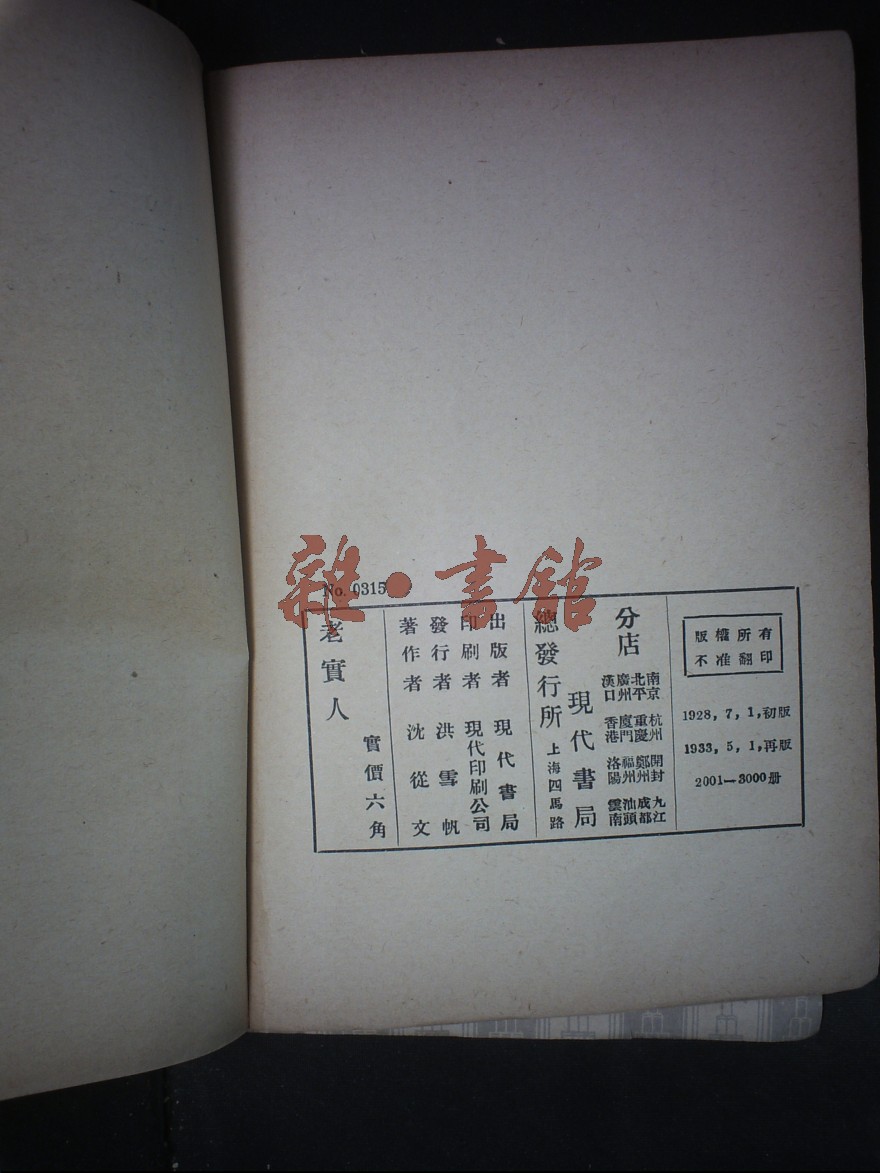 雜·書館
No. 0315
版權所有
不准翻印
1928, 7, 1, 初版
1933, 5, 1, 再版
2001—3000册
分店
南京 杭州 開封 九江
北平 重慶 鄭州 成都
廣州 廈門 福州 汕頭
漢口 香港 洛陽 雲南
現代書局
總發行所 上海四馬路
出版者 現代書局
印刷者 現代印刷公司
發行者 洪雪帆
著作者 沈從文
實價六角
老實人